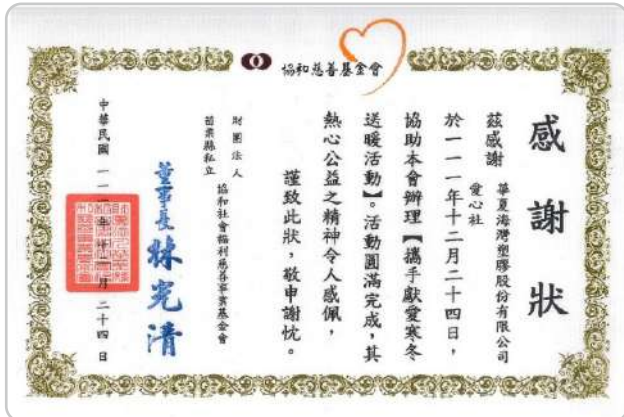 協和慈善基金會
感謝狀
茲感謝 華夏海灣塑膠股份有限公司
愛心社
於一一一年十二月二十四日，
協助本會辦理【攜手獻愛寒冬
送暖活動】。活動圓滿完成，其
熱心公益之精神令人感佩，
謹致此狀，敬申謝忱。
財團法人
苗栗縣私立 協和社會福利慈善事業基金會
董事長 林光清
中華民國一一一年十二月二十四日